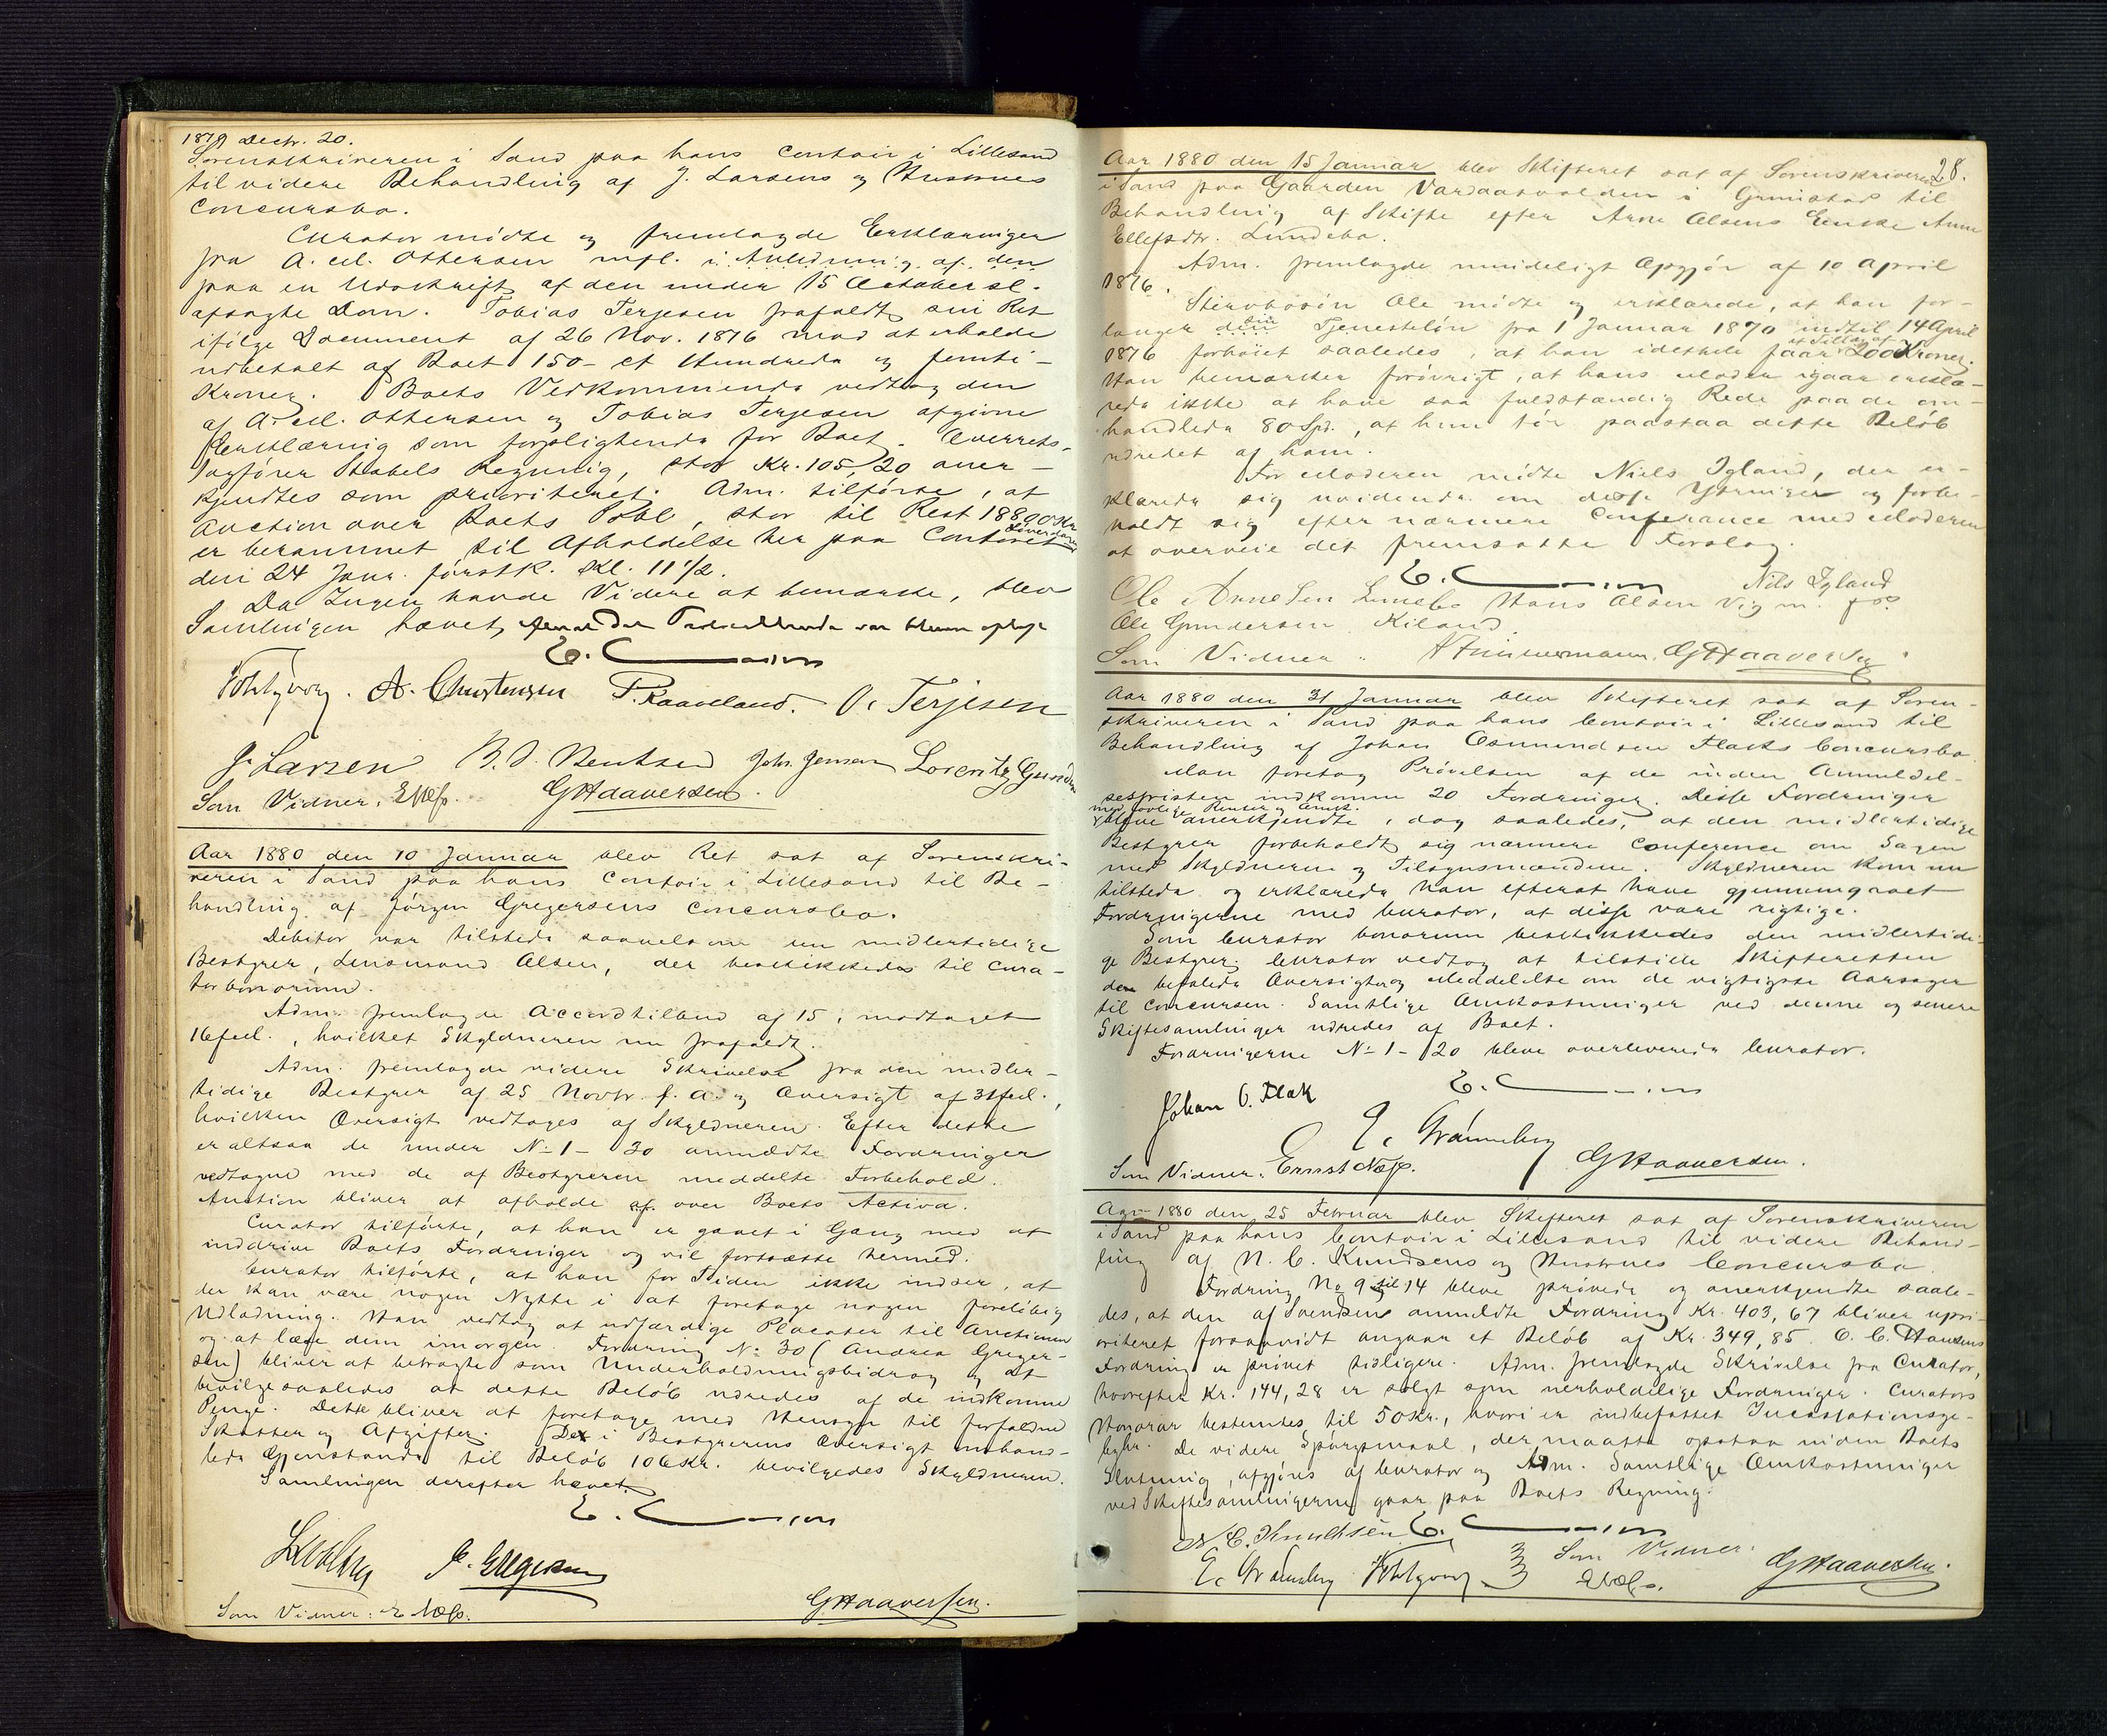 1879 Decbr. 20.
Sorenskriveren i Sand paa hans Contoir i Lillesand
til videre Behandling af J. Larsens og Hustrues
Concursbo.
Curator mødte og fremlagde Erklæringer
fra A. M. Ottersen mfl. i Anledning af den
paa en Udskrift af den under 15 October sl.
afsagte Dom. Tobias Terjesen frafaldt sin Ret
ifølge Document af 26 Nov. 1876 mod at erholde
udbetalt af Boet 150 - et Hundrede og femti -
Kroner. Boets Vedkommende vedtog den
af A. M. Ottersen og Tobias Terjesen afgivne
Erklæring som forpligtende for Boet. Overrets-
sagfører Stabels Regning, stor Kr. 105,20 aner-
kjendtes som prioriteret. Adm. tilførte, at
Auction over Boets , stor til Rest 18800 Kr
er berammet til Afholdelse her paa Contoiret
den 24 Janr. førstk. Kl. 11 1/2.
Da Ingen havde Videre at bemærke, blev
Samlingen hævet, efterat det var bleven oplæst
E.
A. Christensen P. Kaaveland. O. Terjesen
J. Larsen B. O. Bentsen Johs. Jensen Lorentz
Som Vidner: E Næss. GHaaversen.
Aar 1880 den 10 Januar blev Ret sat af Sorenskri-
veren i Sand paa hans Contoir i Lillesand til Be-
handling af Jørgen Gregersens Concursbo.
Debitor var tilstede saavelsom den midlertidige
Bestyrer, Lensmand Olsen, der beskikkedes til Cura-
tor bonorum.
Adm. fremlagde Accordtilbud af 15, modtaget
16 ferl., hvilket Skyldneren nu frafaldt.
Adm. fremlagde videre Skrivelse fra den midler-
tidige Bestyrer af 25 Novbr. f. A. og Oversigt af 31 ferl.,
hvilken Oversigt vedtoges af Skyldneren. Efter dette
er altsaa de under No 1 - 30 anmeldte Fordringer
vedtagne med de af Bestyreren meddelte Forbehold.
Auction bliver at afholde over Boets Activa.
Curator tilførte, at han er gaaet i Gang med at
inddrive Boets Fordringer og vil fortsætte hermed.
Curator tilførte, at han for Tiden ikke indser, at
der kan være nogen Nytte i at foretage nogen foreløbig
Udlodning. Han vedtog at udfærdige Placater til Auctionen
og at læse dem imorgen. Fordring No 30 (Andrea Greger-
sen) bliver at betragte som Underholdningsbidrag og at
bevilge saaledes at dette Beløb udredes af de indkomne
Penge. Dette bliver at foretage med Hensyn til forfaldne
Skatter og Afgifter. De i Bestyrerens Oversigt omhand-
lede Gjenstande til Beløb 106 Kr. bevilgedes Skyldneren.
Samlingen derefter hævet.
E.
J. Gregersen
Som Vidner: E Næss. GHaaversen.
28.
Aar 1880 den 15 Januar blev Skifteret sat af Sorenskriveren
i Sand paa Gaarden Vardaasvolden i Grimstad til
Behandling af Skifte efter Arne Olsens Enke Anne
Ellefsdtr. Lundebo.
Adm. fremlagde mindeligt Opgjør af 10 April
1876.
Stervbosøn Ole mødte og erklærede, at han for-
langer sin Tjenesteløn fra 1 Januar 1870 indtil 14 April
1876 forhøiet saaledes, at han idethele faar et Tillæg af 200 Kroner.
Han bemærker forøvrigt, at hans Moder igaar erklæ-
rede ikke at have saa fuldstændig Rede paa de om-
handlede 80 Spd., at hun tør paastaa dette Beløb
udredet af ham.
For Moderen mødte Niels Igland, der er-
klærede sig uvidende om disse Ytringer og forbe-
holdt sig efter nærmere Conferance med Moderen
at overveie det fremsatte Forslag.
E. Nils Igland
Ole Arnesen Lunebo Hans Olsen Vig m. f. P.
Ole Gundersen Kiland.
Som Vidner: GHaaversen
Aar 1880 den 31 Januar blev Skifteret sat af Soren-
skriveren i Sand paa hans Contoir i Lillesand til
Behandling af Johan Osmundsen Flaks Concursbo.
Man foretog Prøvelsen af de inden Anmeldel-
sesfristen indkomne 20 Fordringer. Disse Fordringer
med lovlige Renter og Omk.
bleve anerkjendte, dog saaledes, at den midlertidige
Bestyrer forbeholdt sig nærmere Conference om Sagen
med Skyldneren og Tilsynsmændene. Skyldneren kom nu
tilstede og erklærede han efterat have gjennemgaaet
Fordringerne med Curator, at disse vare rigtige.
Som Curator bonorum beskikkedes den midlertidi-
ge Bestyrer. Curator vedtog at tilstille Skifteretten
den befalede Oversigt og Meddelelse om de vigtigste Aarsager
til Concursen. Samtlige Omkostninger ved denne og senere
Skiftesamlinger udredes af Boet.
Fordringerne No 1 - 20 bleve overleverede Curator.
Johan O. Flak E.
E. Grønneberg
Som Vidner: Ernst Næss. GHaaversen.
Aar 1880 den 25 Februar blev Skifteret sat af Sorenskriveren
i Sand paa hans Contoir i Lillesand til videre Behand-
ling af N. C. Knudsens og Hustrues Concursbo.
Fordring No 9 til 14 bleve prøvede og anerkjendte saale-
des, at den af Svendsen anmeldte Fordring Kr. 403,67 bliver upri-
oriteret forsaavidt angaar et Beløb af Kr. 349,85. O. C. Hansens
Fordring er prøvet tidligere. Adm. fremlagde Skrivelse fra Curator,
hvorefter Kr. 144,28 er solgt som uerholdelige Fordringer. Curators
Honorar bestemtes til 50 Kr., hvori er indbefattet Incassationsge-
byhr. De videre Spørgsmaal, der maatte opstaa inden Boets
Slutning, afgjøres af Curator og Adm. Samtlige Omkostninger
ved Skiftesamlingerne gaar paa Boets Regning.
N. C. Knudsen E.
E. Grønneberg Som Vidner:
E Næss. GHaaversen.